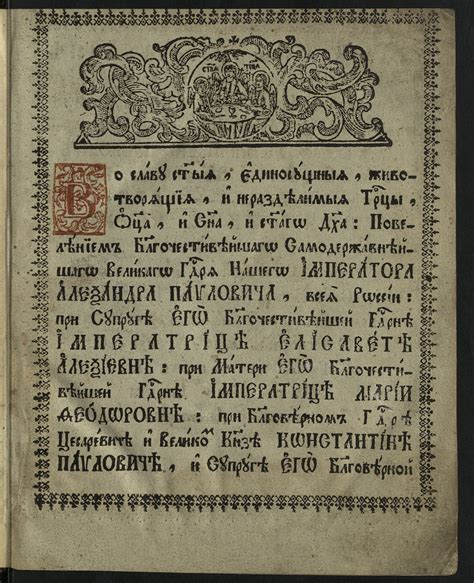 Во славу ст҃ыѧ, Єдиносꙋщныѧ, живо-
творѧщїѧ, и нераздѣлимыѧ Трⷪ҇цы,
Ѻц҃а, и Сн҃а, и ст҃агѡ Дх҃а: Пове-
лѣнїемъ Бл҃гочестивѣйшагѡ Самодержавнѣй-
шагѡ Великагѡ Гдⷭ҇рѧ Нашегѡ ІМПЕРАТОРА
АЛЕѮАНДРА ПАѴЛОВИЧА, всеѧ Рѡссїи:
при Сꙋпрꙋгѣ ЕГѠ Бл҃гочестивѣйшей Гдⷭ҇рнѣ
ІМПЕРАТРІЦѢ ЕЛІСАВЕТѢ
АЛЕѮІЕВНѢ: при Матери ЕГѠ Бл҃гочести-
вѣйшей Гдⷭ҇рнѣ ІМПЕРАТРІЦѢ МАРІИ
ѲЕОДѠРОВНѢ: при Бл҃говѣрномъ Гдⷭ҇рѣ
Цесаревичѣ и Великоⷨ Кн҃зѣ КѠНСТАНТІНѢ
ПАѴЛОВИЧѢ, и Сꙋпрꙋгѣ ЕГѠ Бл҃говѣрной